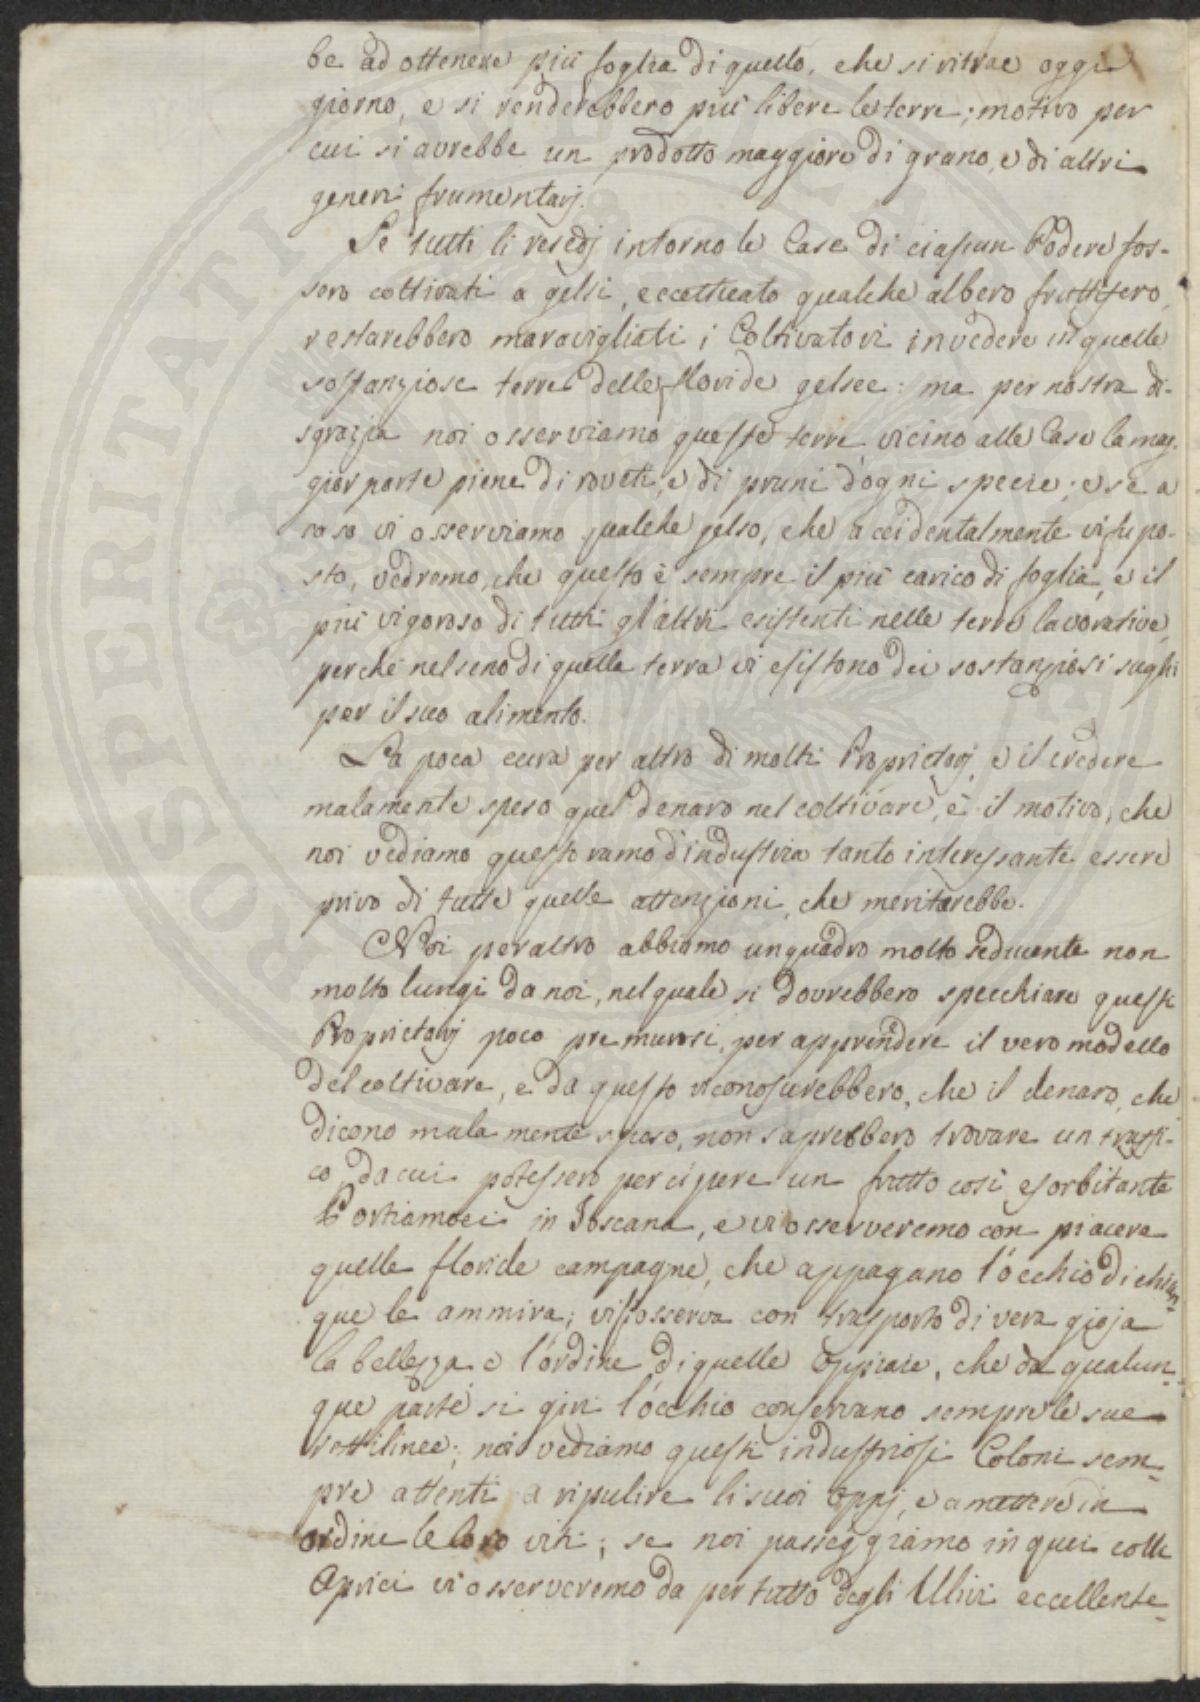 be ad ottenere più foglia di quello, che si ritrae oggi
giorno, e si renderebbero più libere le terre; motivo per
cui si avrebbe un prodotto maggiore di grano, e di altri
generi frumentarj.
Se tutti li resedj intorno le Case di ciascun Podere fos-
sero coltivati a gelsi, eccettuato qualche albero fruttifero,
restarebbero maravigliati i Coltivatori in vedere in quelle
sostanziose terre delle floride gelsee: ma per nostra di-
sgrazia noi osserviamo queste terre vicino alle Case la mag-
gior parte piene di roveti, e di pruni d'ogni specie; e se a
caso vi osserviamo qualche gelso, che accidentalmente vi fu po-
sto, vedremo, che questo è sempre il più carico di foglia, e il
più vigoroso di tutti gl'altri esistenti nelle terre lavorative,
perchè nel seno di quelle terra vi esistono dei sostanziosi sughi
per il suo alimento.
La poca cura per altro di molti Proprietarj, e il credere
malamente speso quel denaro nel coltivare, è il motivo, che
noi vediamo questo ramo d'industria tanto interessante essere
privo di tutte quelle attenzioni, che meritarebbe.
Noi per altro abbiamo un quadro molto seducente non
molto lungi da noi, nel quale si dovrebbero specchiare questi
Proprietarj poco premurosi, per apprendere il vero modello
del coltivare, e da questo riconoscerebbero, che il denaro, che
dicono malamente speso, non saprebbero trovare un traffi-
co, da cui potessero percipere un frutto così esorbitante
Portiamoci in Toscana, e vi osserveremo con piacere
quelle floride campagne, che appagano l'occhio di chiun-
que le ammira; vi si osserva con trasporto di vera gioja
la bellezza e l'ordine di quelle Oppiare, che da qualun-
que parte si giri l'occhio conservano sempre le sue
rettilinee; noi vediamo questi industriosi Coloni sem-
pre attenti a ripulire li suoi Oppj, e a mettere in
ordine le loro viti; se noi passeggiamo in quei colli
Aprici vi osserveremo da per tutto degli Ulivi eccellente-
PROSPERITATI PUBLICAE